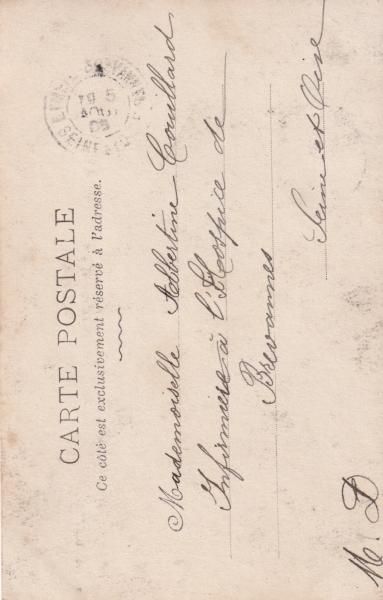 CARTE POSTALE
Ce côté est exclusivement réservé à l'adresse.
Mademoiselle Albertine Couillard
Infirmière à l'Hospice de
Brevannes
Seine et Oise
M. D